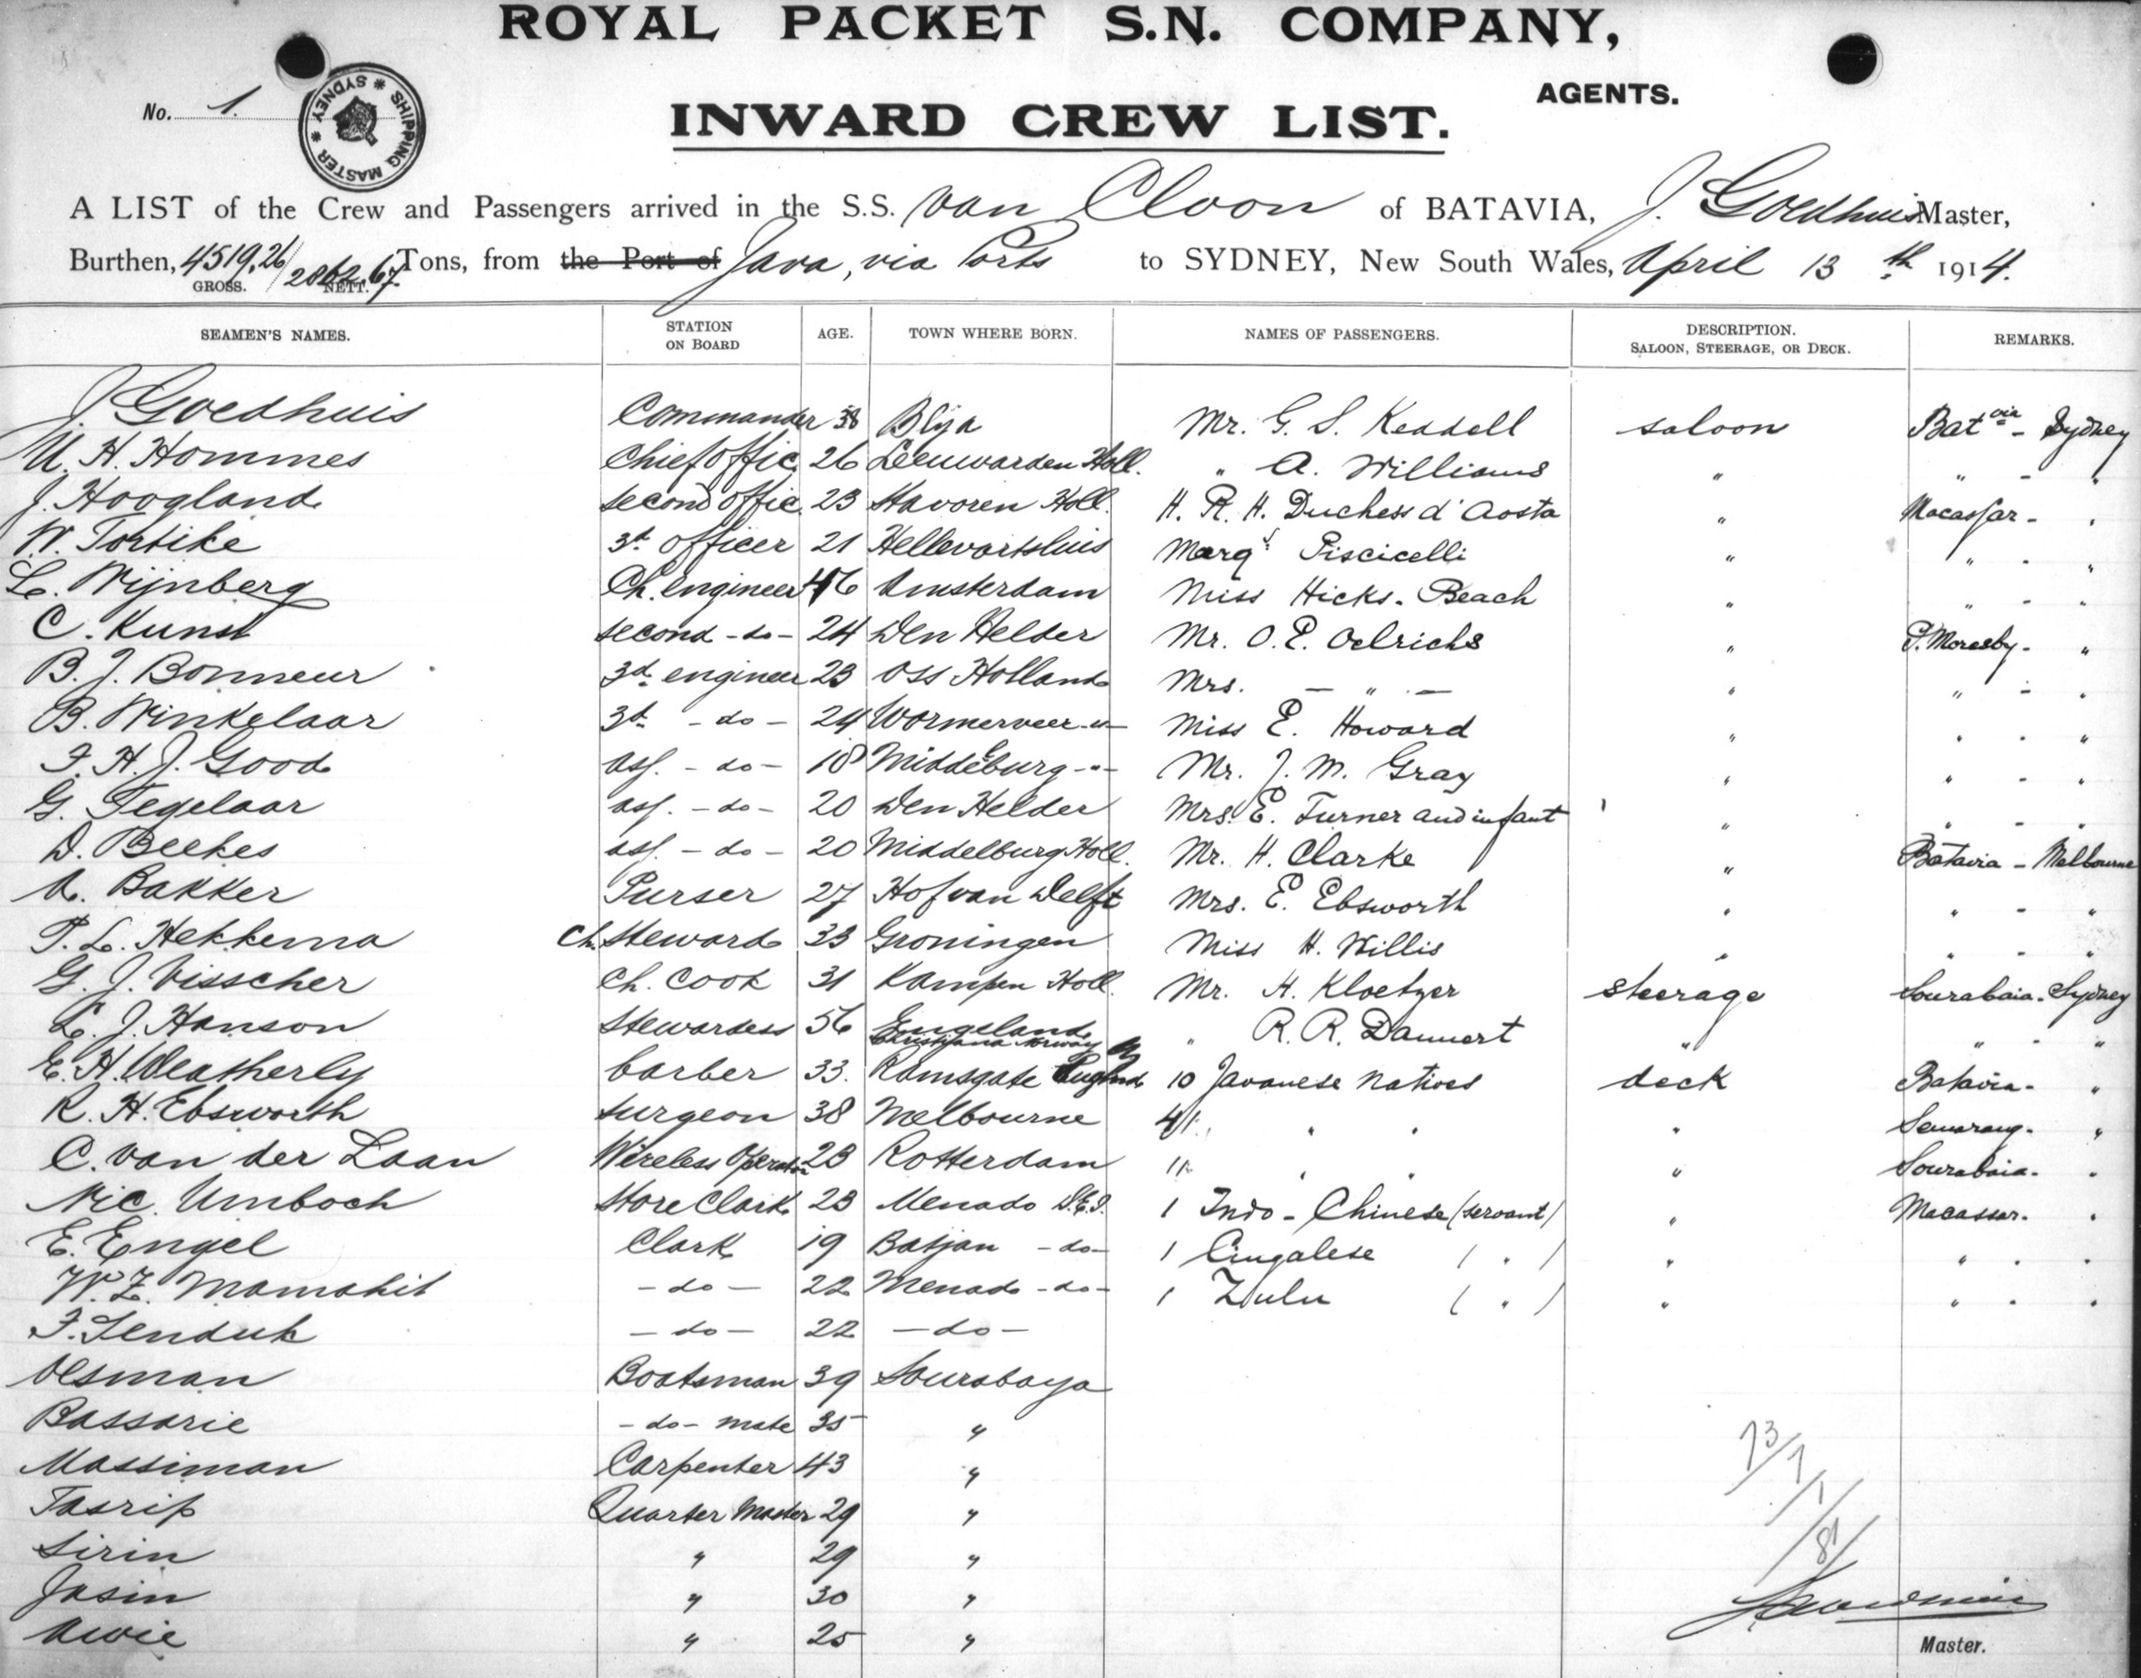 ROYAL PACKET S.N. COMPANY,
AGENTS.
No. 1.
SHIPPING MASTER * SYDNEY *
INWARD CREW LIST.
A LIST of the Crew and Passengers arrived in the S.S. van Cloon of BATAVIA, J. Goedhuis Master,
Burthen, 4519,26/2862,67 Tons, from the Port of Java, via Ports to SYDNEY, New South Wales, April 13th 1914.
GROSS. NETT.
SEAMEN'S NAMES. STATION ON BOARD AGE. TOWN WHERE BORN. NAMES OF PASSENGERS. DESCRIPTION. SALOON, STEERAGE, OR DECK. REMARKS.
J. Goedhuis Commander 38 Blija Mr. G. S. Keddell saloon Batavia - Sydney
U. H. Hommes Chief offic. 26 Leeuwarden Holl. " A. Williams " " - "
J. Hoogland second offic. 23 Stavoren Holl. H. R. H. Duchess d'Aosta " Macassar - "
W. Tortike 3d officer 21 Hellevoetsluis Marqs Piscicelli " " - "
L. Wijnberg Ch. engineer 46 Amsterdam Miss Hicks-Beach " " - "
C. Kunst second -do- 24 Den Helder Mr. O. E. Oelrichs " P. Moresby - "
B. J. Bonneur 3d engineer 23 Oss Holland Mrs. - " - " " - "
B. Winkelaar 3d -do- 24 Wormerveer -"- Miss E. Howard " " - "
F. H. J. Good ass. -do- 18 Middelburg -"- Mr. J. M. Gray " " - "
G. Tegelaar ass. -do- 20 Den Helder Mrs. E. Turner and infant " " - "
D. Beekes ass. -do- 20 Middelburg Holl. Mr. H. Clarke " Batavia - Melbourne
A. Bakker Purser 27 Hof van Delft Mrs. E. Ebsworth " " - "
P. L. Hekkema Ch. Steward 33 Groningen Miss H. Willis " " - "
G. J. Visscher Ch. Cook 31 Kampen Holl. Mr. H. Kloetzer steerage Sourabaia - Sydney
L. J. Hanson Stewardess 56 Engeland Christiania Norway " R. R. Dannert " " - "
E. H. Weatherly barber 33. Ramsgate England 10 Javanese natives deck Batavia - "
R. H. Ebsworth surgeon 38 Melbourne 41 " " " Semarang - "
C. van der Laan Wireless Operator 23 Rotterdam 11 " " " Sourabaia - "
Nic. Umboch Store Clark 23 Menado D.E.I. 1 Indo-Chinese (servant) " Macassar - "
E. Engel Clark 19 Batjan -do- 1 Cingalese ( " ) " " - "
W. Z. Mamahit -do- 22 Menado -do- 1 Zulu ( " ) " " - "
F. Senduk -do- 22 -do-
Oesman Boatsman 39 Sourabaya
Bassarie -do- mate 35 "
Massiman Carpenter 43 "
Tasrip Quarter Master 29 "
Sirin " 29 "
Jasin " 30 "
Awie " 25 "
73/7/1/81
Master.